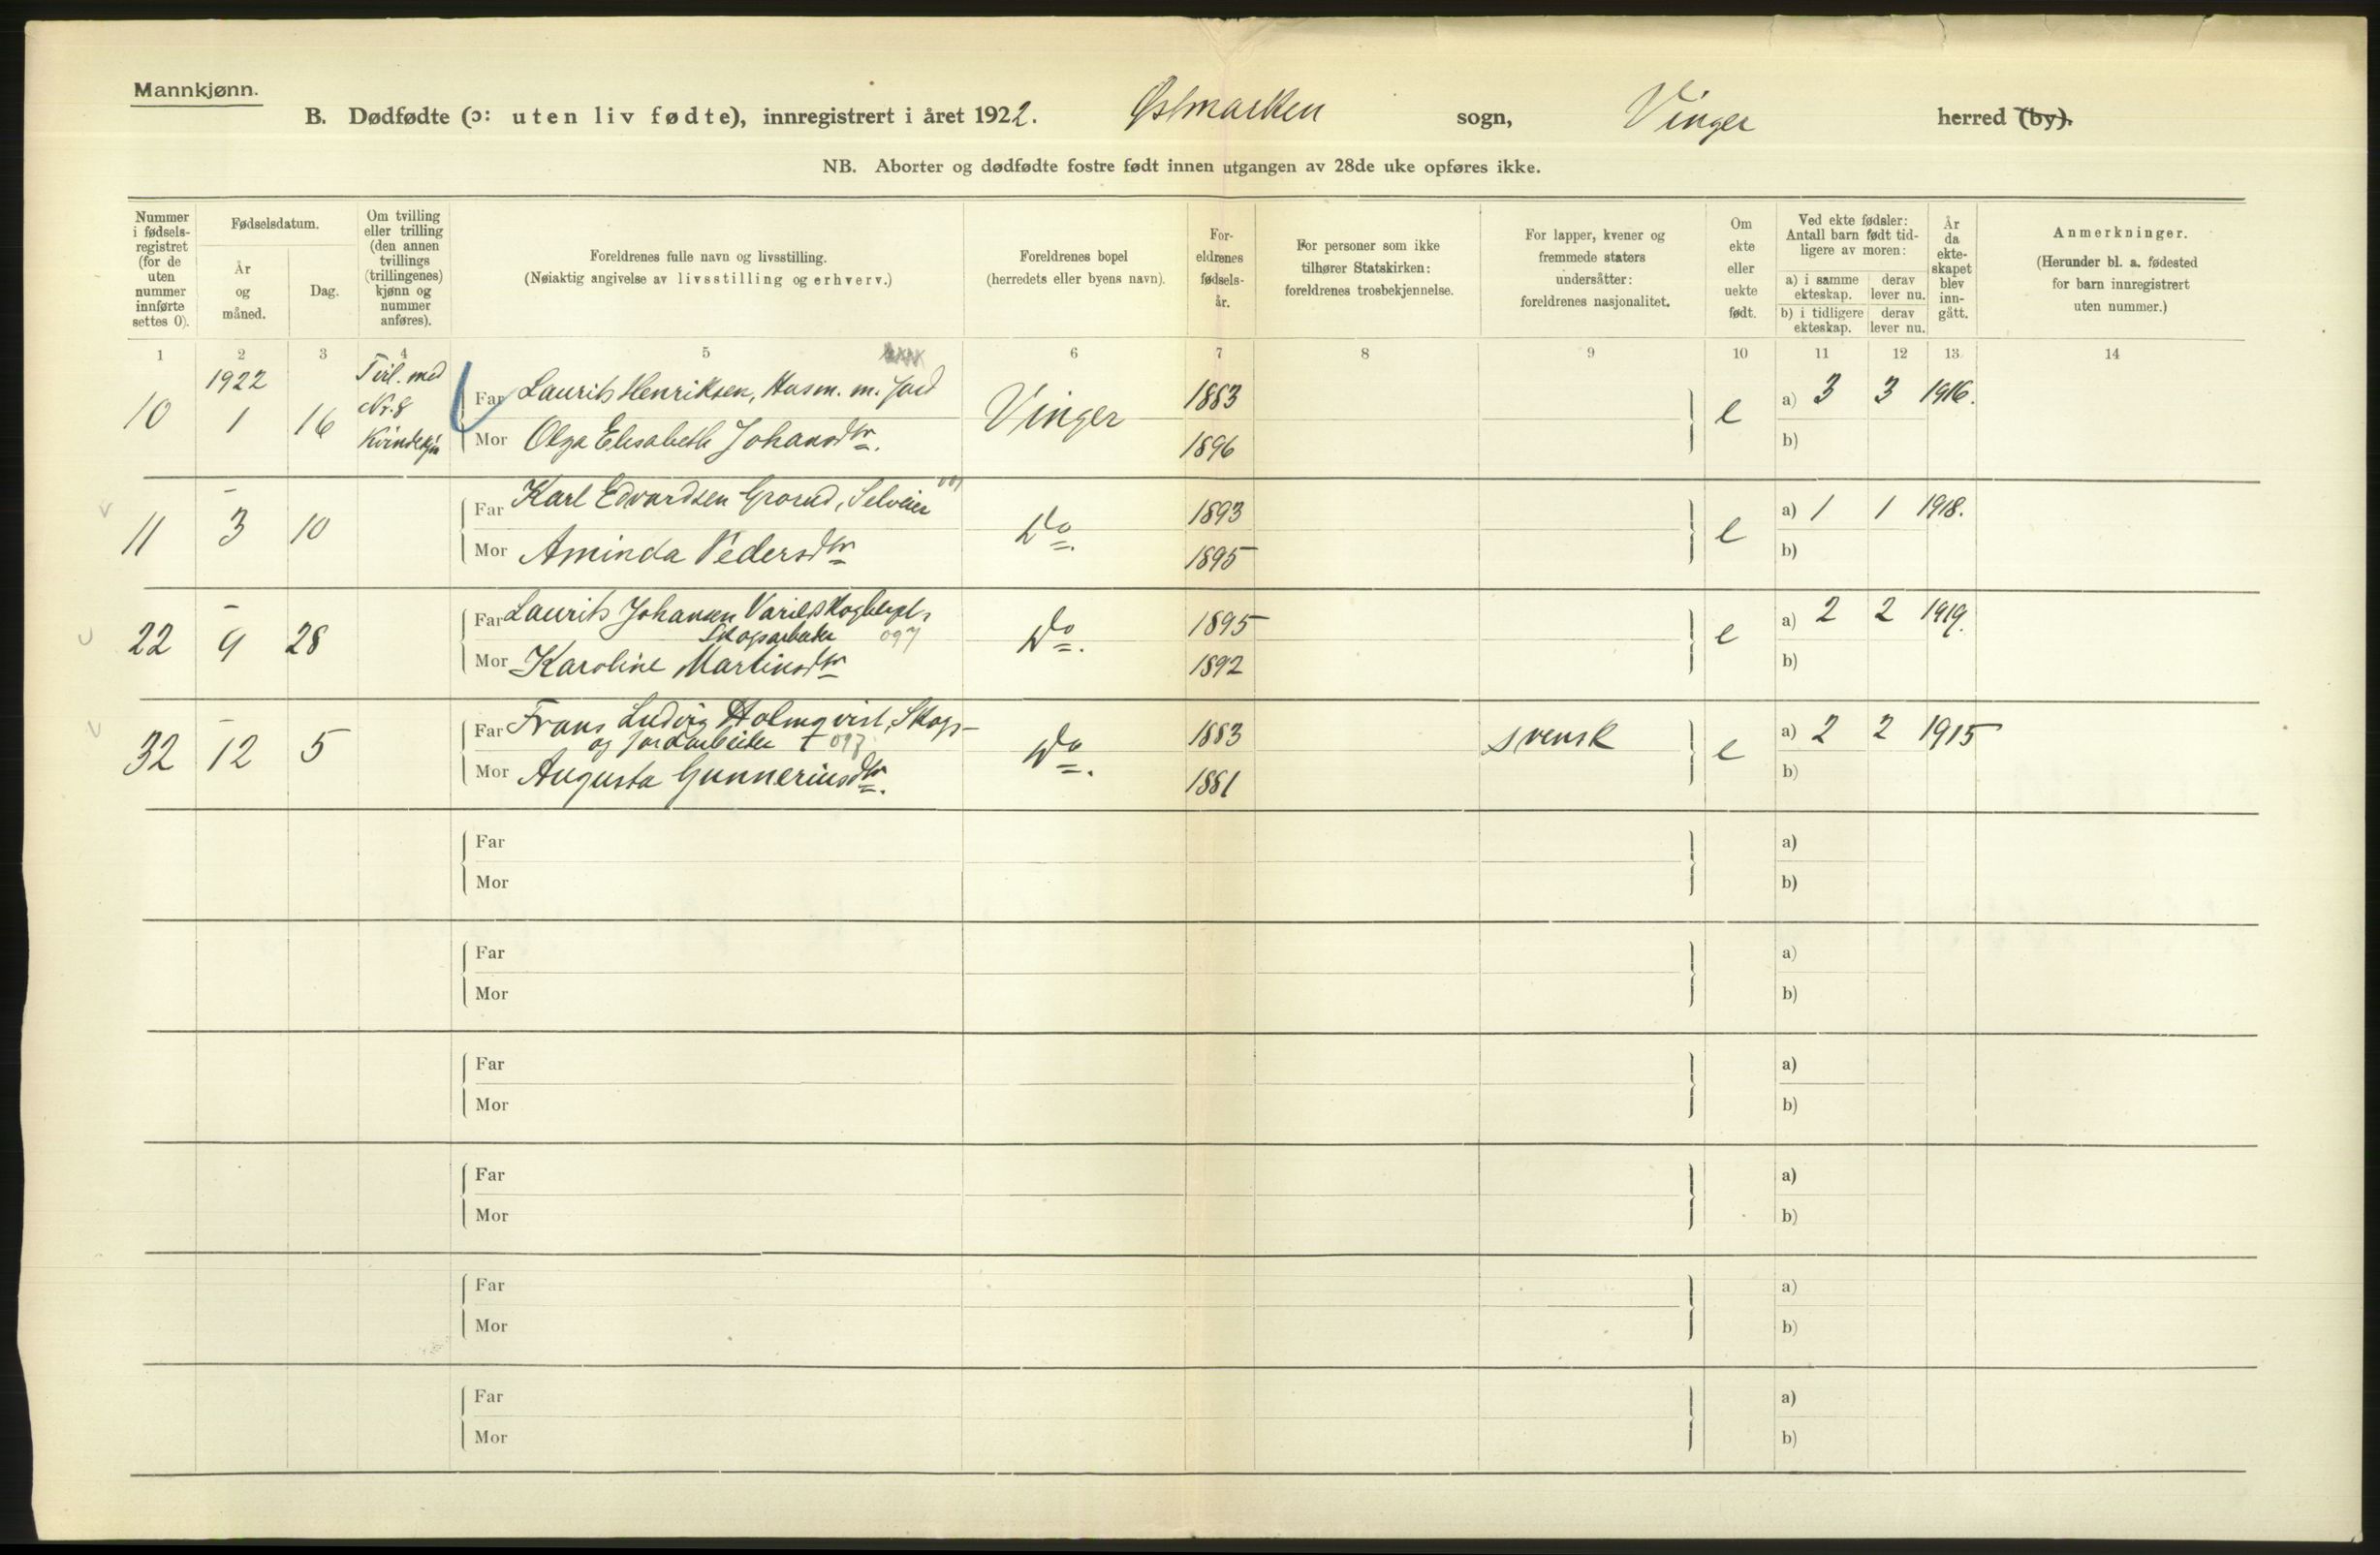 Mannkjønn.
B. Dødfødte (ɔ: uten liv fødte), innregistrert i året 1922. Østmarken sogn, Vinger herred (by).
NB. Aborter og dødfødte fostre født innen utgangen av 28de uke opføres ikke.
Nummer i fødsels-registret (for de uten nummer innførte settes 0).
Fødselsdatum.
År og måned.
Dag.
Om tvilling eller trilling (den annen tvillings (trillingenes) kjønn og nummer anføres).
Foreldrenes fulle navn og livsstilling.
(Nøiaktig angivelse av livsstilling og erhverv.)
Foreldrenes bopel
(herredets eller byens navn).
For-eldrenes fødsels-år.
For personer som ikke tilhører Statskirken: foreldrenes trosbekjennelse.
For lapper, kvener og fremmede staters undersåtter: foreldrenes nasjonalitet.
Om ekte eller uekte født.
Ved ekte fødsler: Antall barn født tid-ligere av moren:
a) i samme ekteskap.
derav lever nu.
b) i tidligere ekteskap.
derav lever nu.
År da ekte-skapet blev inn-gått.
Anmerkninger.
(Herunder bl. a. fødested for barn innregistrert uten nummer.)
1 2 3 4 5 6 7 8 9 10 11 12 13 14
10 1922 1 16 Tvil. med Nr. 8 Kvindekjn
Far Laurits Henriksen, Husm. m. jord Vinger 1883 e a) 3 3 1916.
Mor Olga Elisabeth Johansdtr. 1896 b)
11 - 3 10
Far Karl Edvardsen Grorud, Selveier Do. 1893 e a) 1 1 1918.
Mor Aminda Pedersdtr 1895 b)
22 - 9 28
Far Laurits Johansen Varild, Skogarbeider 097 Do. 1895 e a) 2 2 1919.
Mor Karoline Martinsdtr 1892 b)
32 - 12 5
Far Frans Ludvig Holmqvist, Skogs-
og jordarbeider 097 Do. 1883 svensk e a) 2 2 1915
Mor Augusta Gunneriusdtr. 1881 b)
Far a)
Mor b)
Far a)
Mor b)
Far a)
Mor b)
Far a)
Mor b)
Far a)
Mor b)
Far a)
Mor b)